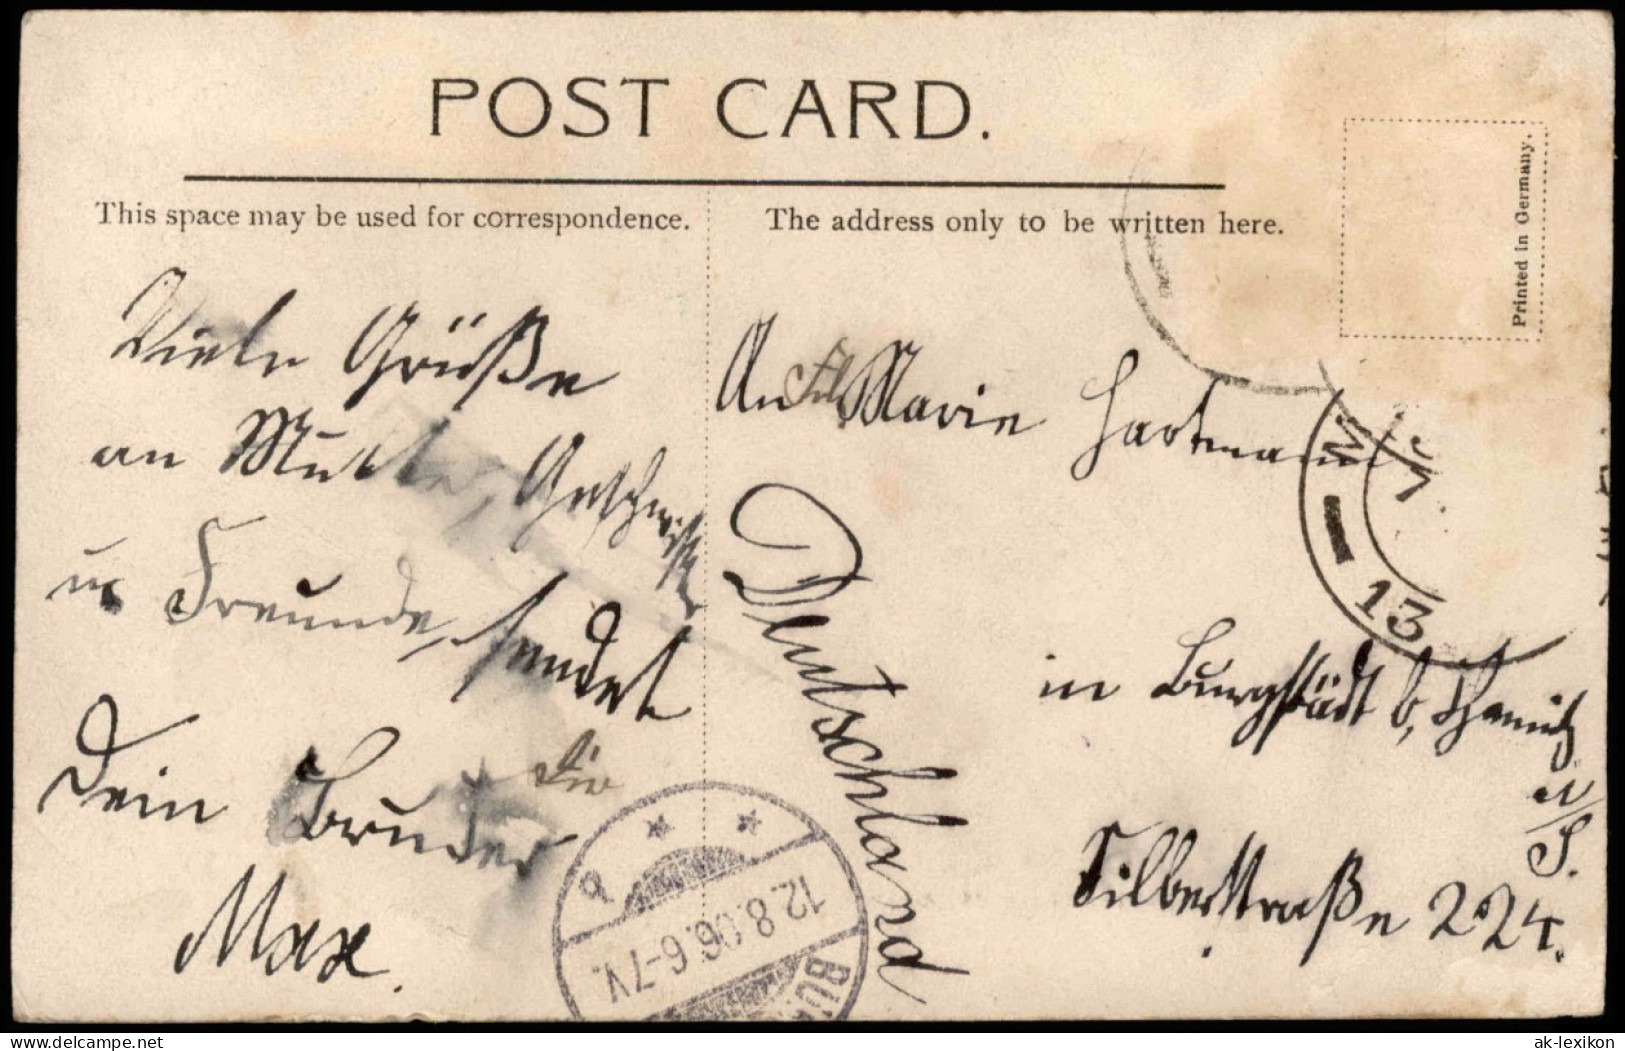 POST CARD.
This space may be used for correspondence.
The address only to be written here.
Printed in Germany.
Viele Grüße
an Mutter, Geschwister
u. Freunde, sendet
Dir
Dein Bruder
Max.
An Frl. Marie Hartmann
in Burgstädt b. Chemnitz
i/S.
Silberstraße 224.
Deutschland
13
12.8.06.6-7V.
BUR
hippostcard.com
ak-lexikon